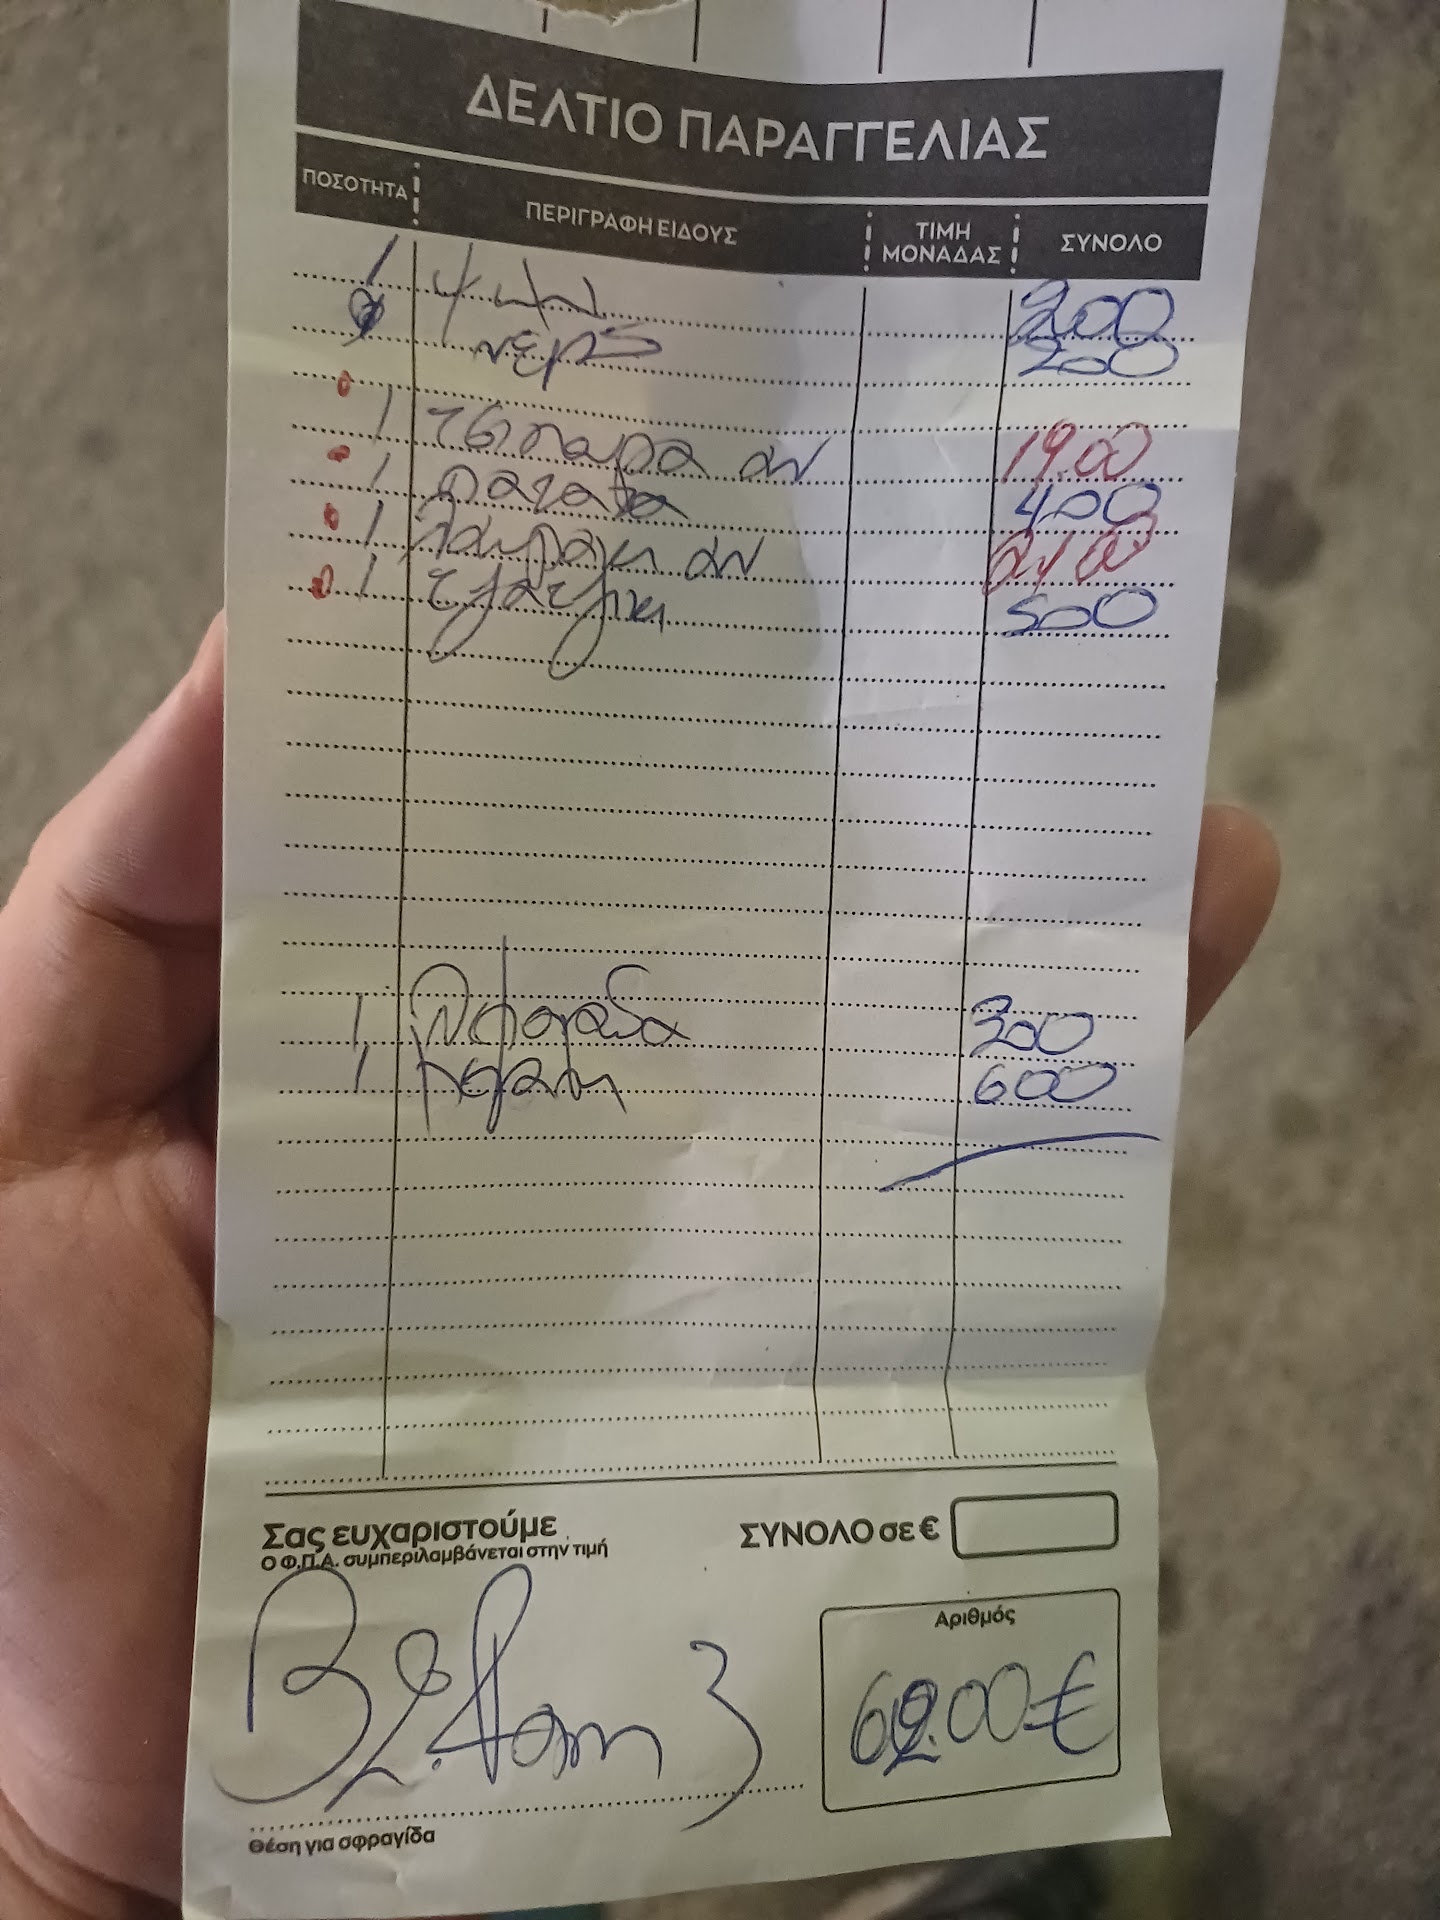 ΔΕΛΤΙΟ ΠΑΡΑΓΓΕΛΙΑΣ
ΠΟΣΟΤΗΤΑ ΠΕΡΙΓΡΑΦΗ ΕΙΔΟΥΣ ΤΙΜΗ ΜΟΝΑΔΑΣ ΣΥΝΟΛΟ
1 ψωμ 200
νερο 200
1 τσιπουρα αν 19.00
1 πατατα 400
1 λαυρακι αν 21.00
1 τζατζικι 500
1 300
1 600
Σας ευχαριστούμε
Ο Φ.Π.Α. συμπεριλαμβάνεται στην τιμή
ΣΥΝΟΛΟ σε €
Αριθμός
62.00€
3
Θέση για σφραγίδα